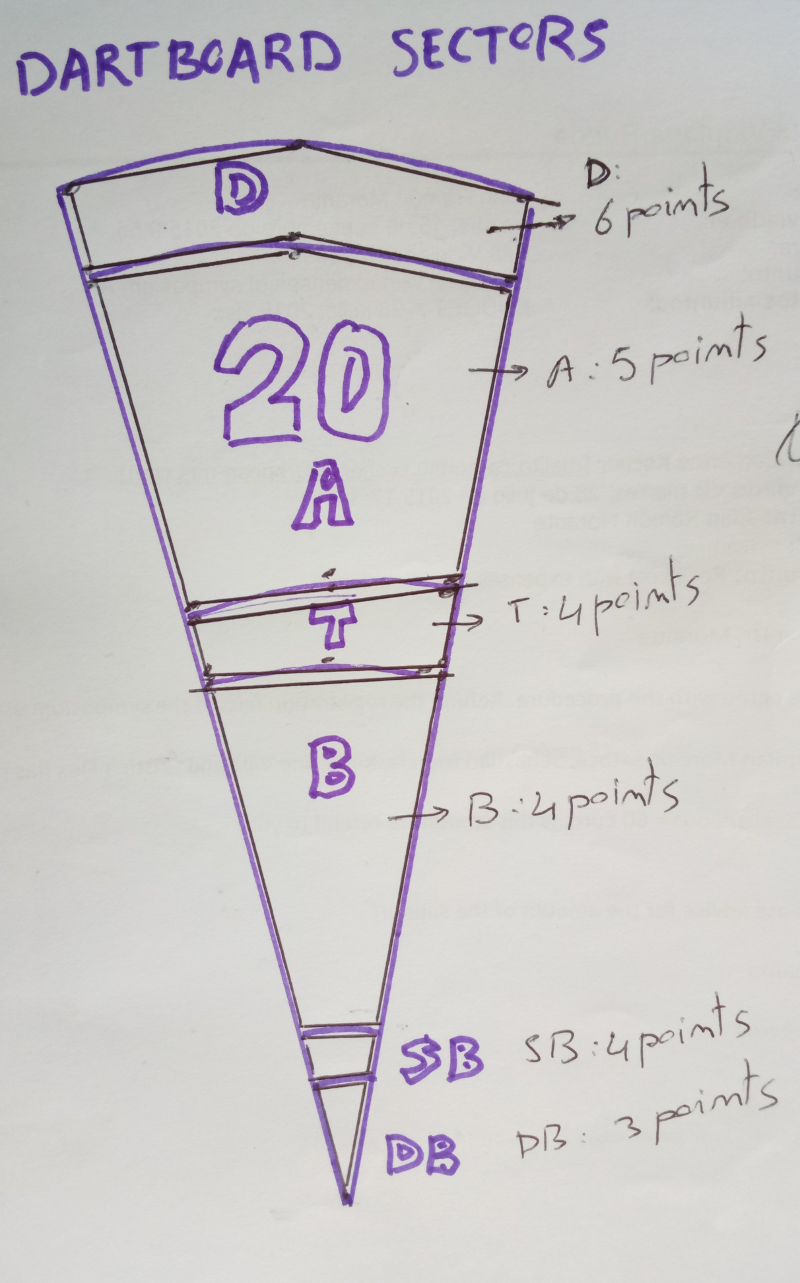 DARTBOARD SECTORS
D
D:
6 points
20
A : 5 points
A
T
T : 4 points
B
B : 4 points
SB
SB : 4 points
DB
DB : 3 points